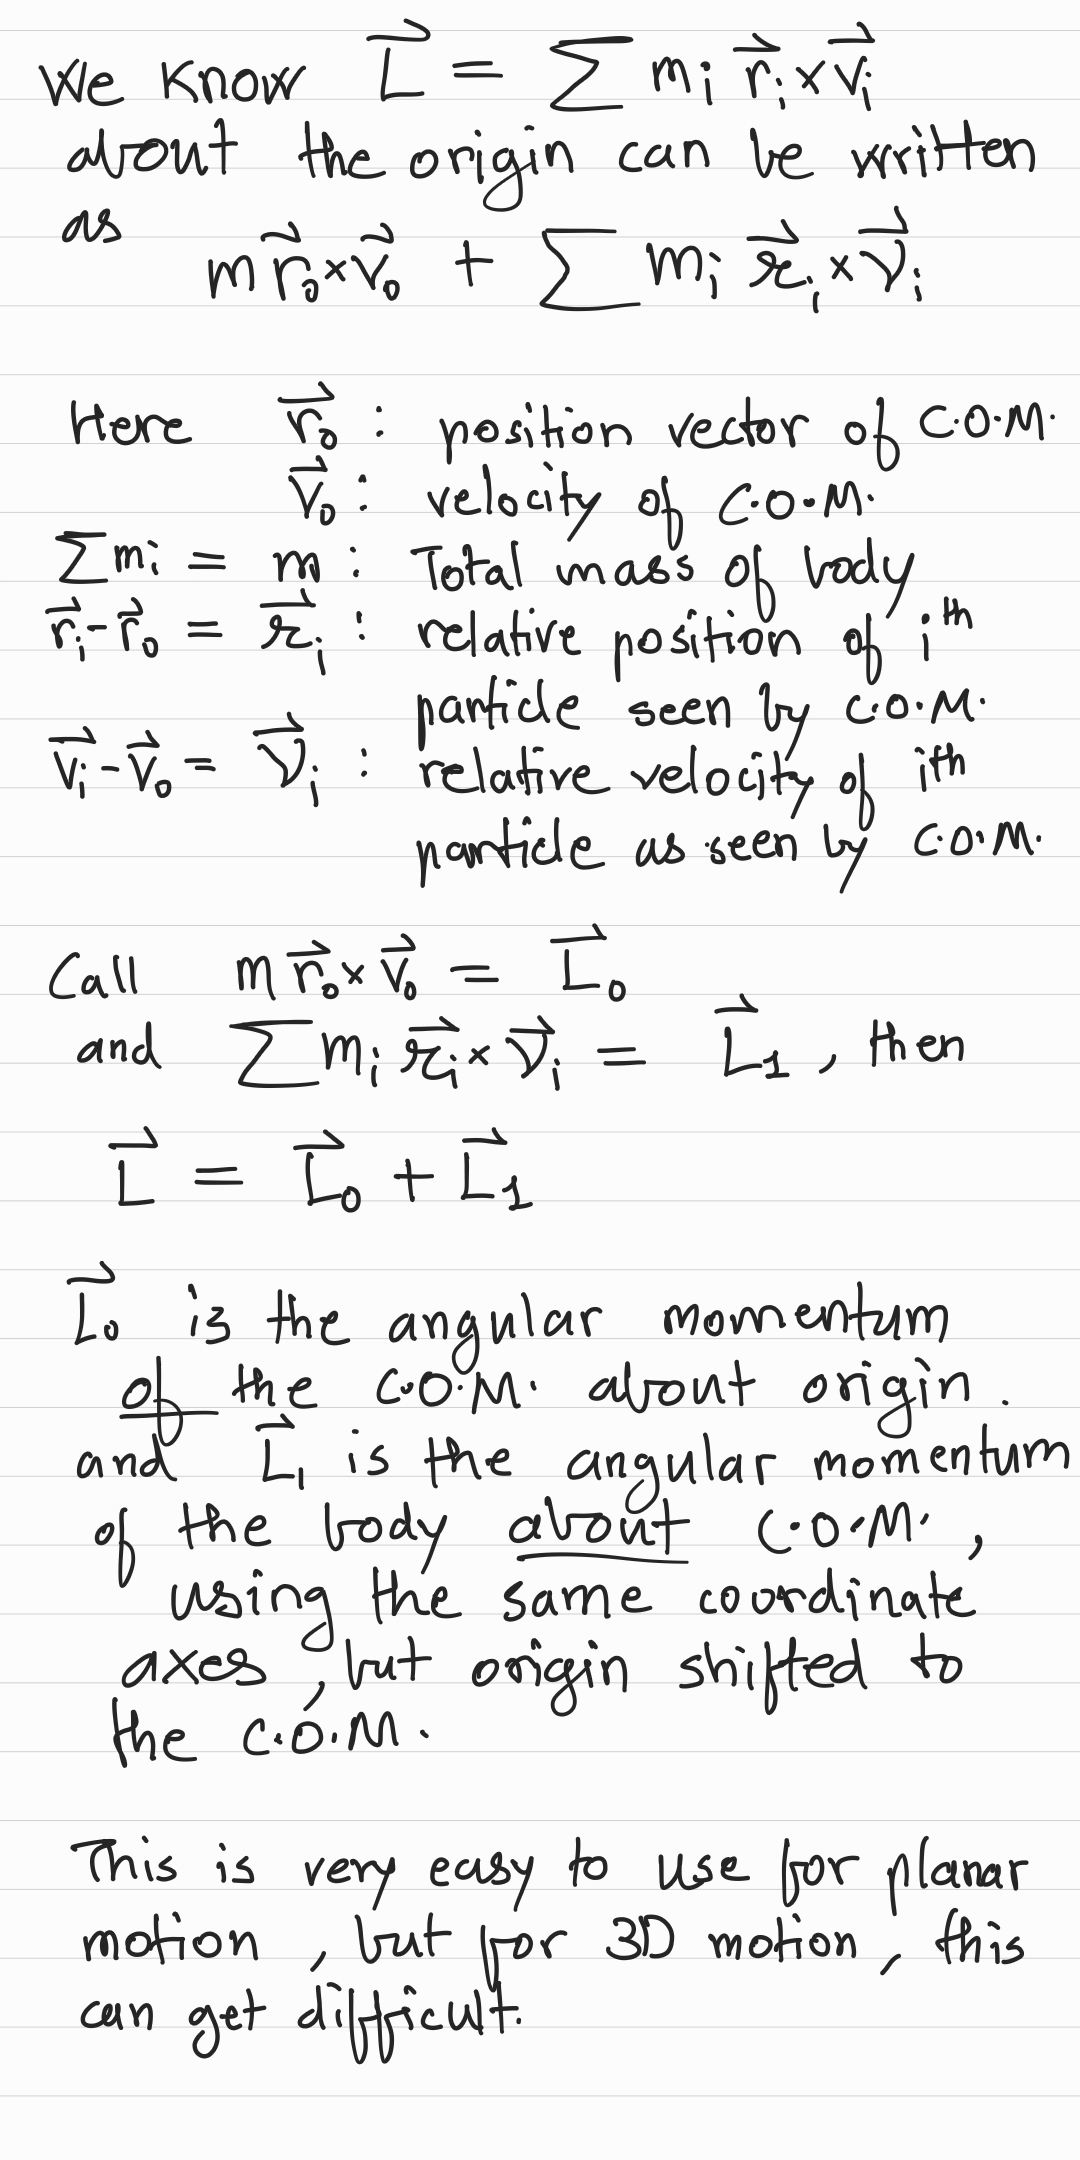 We know L⃗ = ∑ mᵢ r⃗ᵢ × v⃗ᵢ
about the origin can be written
as
m r⃗₀ × v⃗₀ + ∑ mᵢ 𝓇⃗ᵢ × 𝓋⃗ᵢ
Here r⃗₀ : position vector of C.O.M.
v⃗₀ : velocity of C.O.M.
∑ mᵢ = m : Total mass of body
r⃗ᵢ - r⃗₀ = 𝓇⃗ᵢ : relative position of iᵗʰ
particle seen by C.O.M.
v⃗ᵢ - v⃗₀ = 𝓋⃗ᵢ : relative velocity of iᵗʰ
particle as seen by C.O.M.
Call m r⃗₀ × v⃗₀ = L⃗₀
and ∑ mᵢ 𝓇⃗ᵢ × 𝓋⃗ᵢ = L⃗₁ , then
L⃗ = L⃗₀ + L⃗₁
L⃗₀ is the angular momentum
of the C.O.M. about origin.
and L⃗₁ is the angular momentum
of the body about C.O.M. ,
using the same coordinate
axes, but origin shifted to
the C.O.M.
This is very easy to use for planar
motion, but for 3D motion, this
can get difficult.